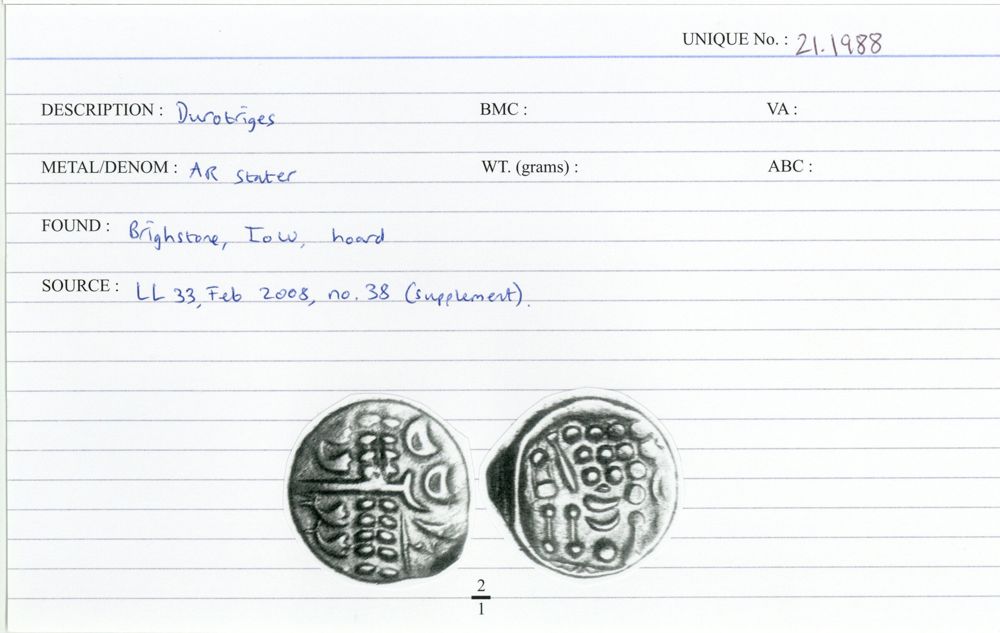 UNIQUE No. : 21.1988
DESCRIPTION : Durotriges BMC : VA :
METAL/DENOM : AR stater WT. (grams) : ABC :
FOUND : Brighstone, IoW, hoard
SOURCE : LL 33, Feb 2008, no. 38 (supplement).
2
1